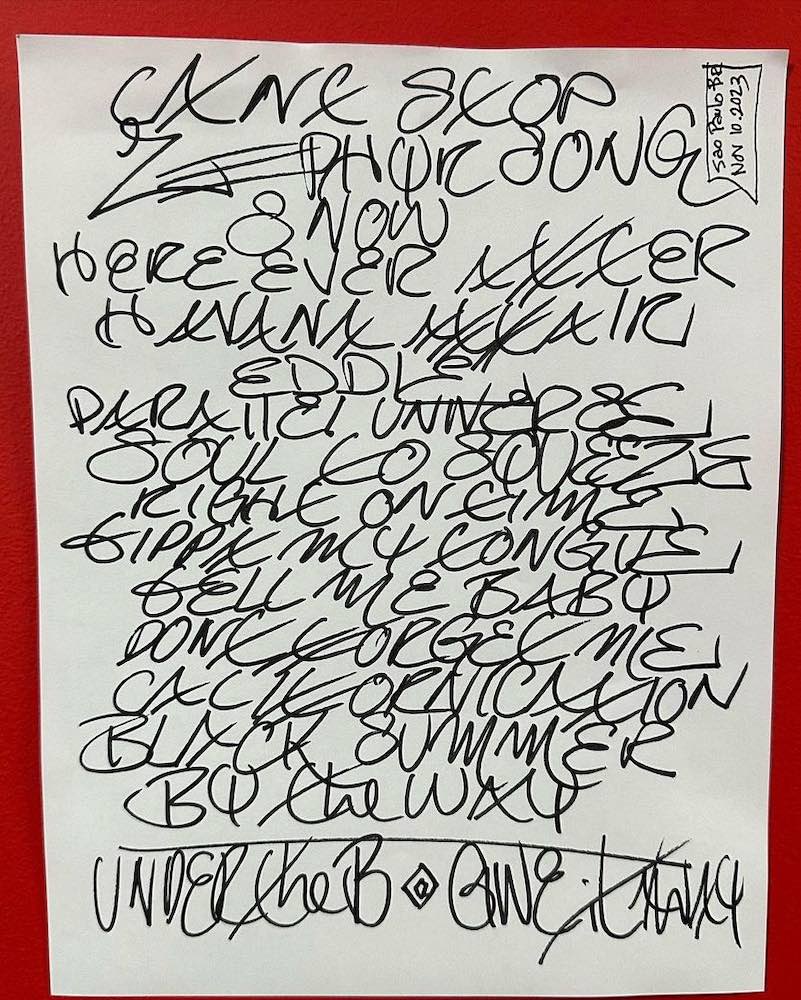 CANT STOP
Sao Paulo BR
Nov 10. 2023
ZEPHYR SONG
8 NOW
HERE EVER AFTER
HAVANA AFFAIR
EDDIE
PARALLEL UNIVERSE
SOUL TO SQUEEZE
RIGHT ON TIME
TIPPA MY TONGUE
TELL ME BABY
DONT FORGET ME
CALIFORNICATION
BLACK SUMMER
BY the WAY
UNDER the B GIVE it AWAY